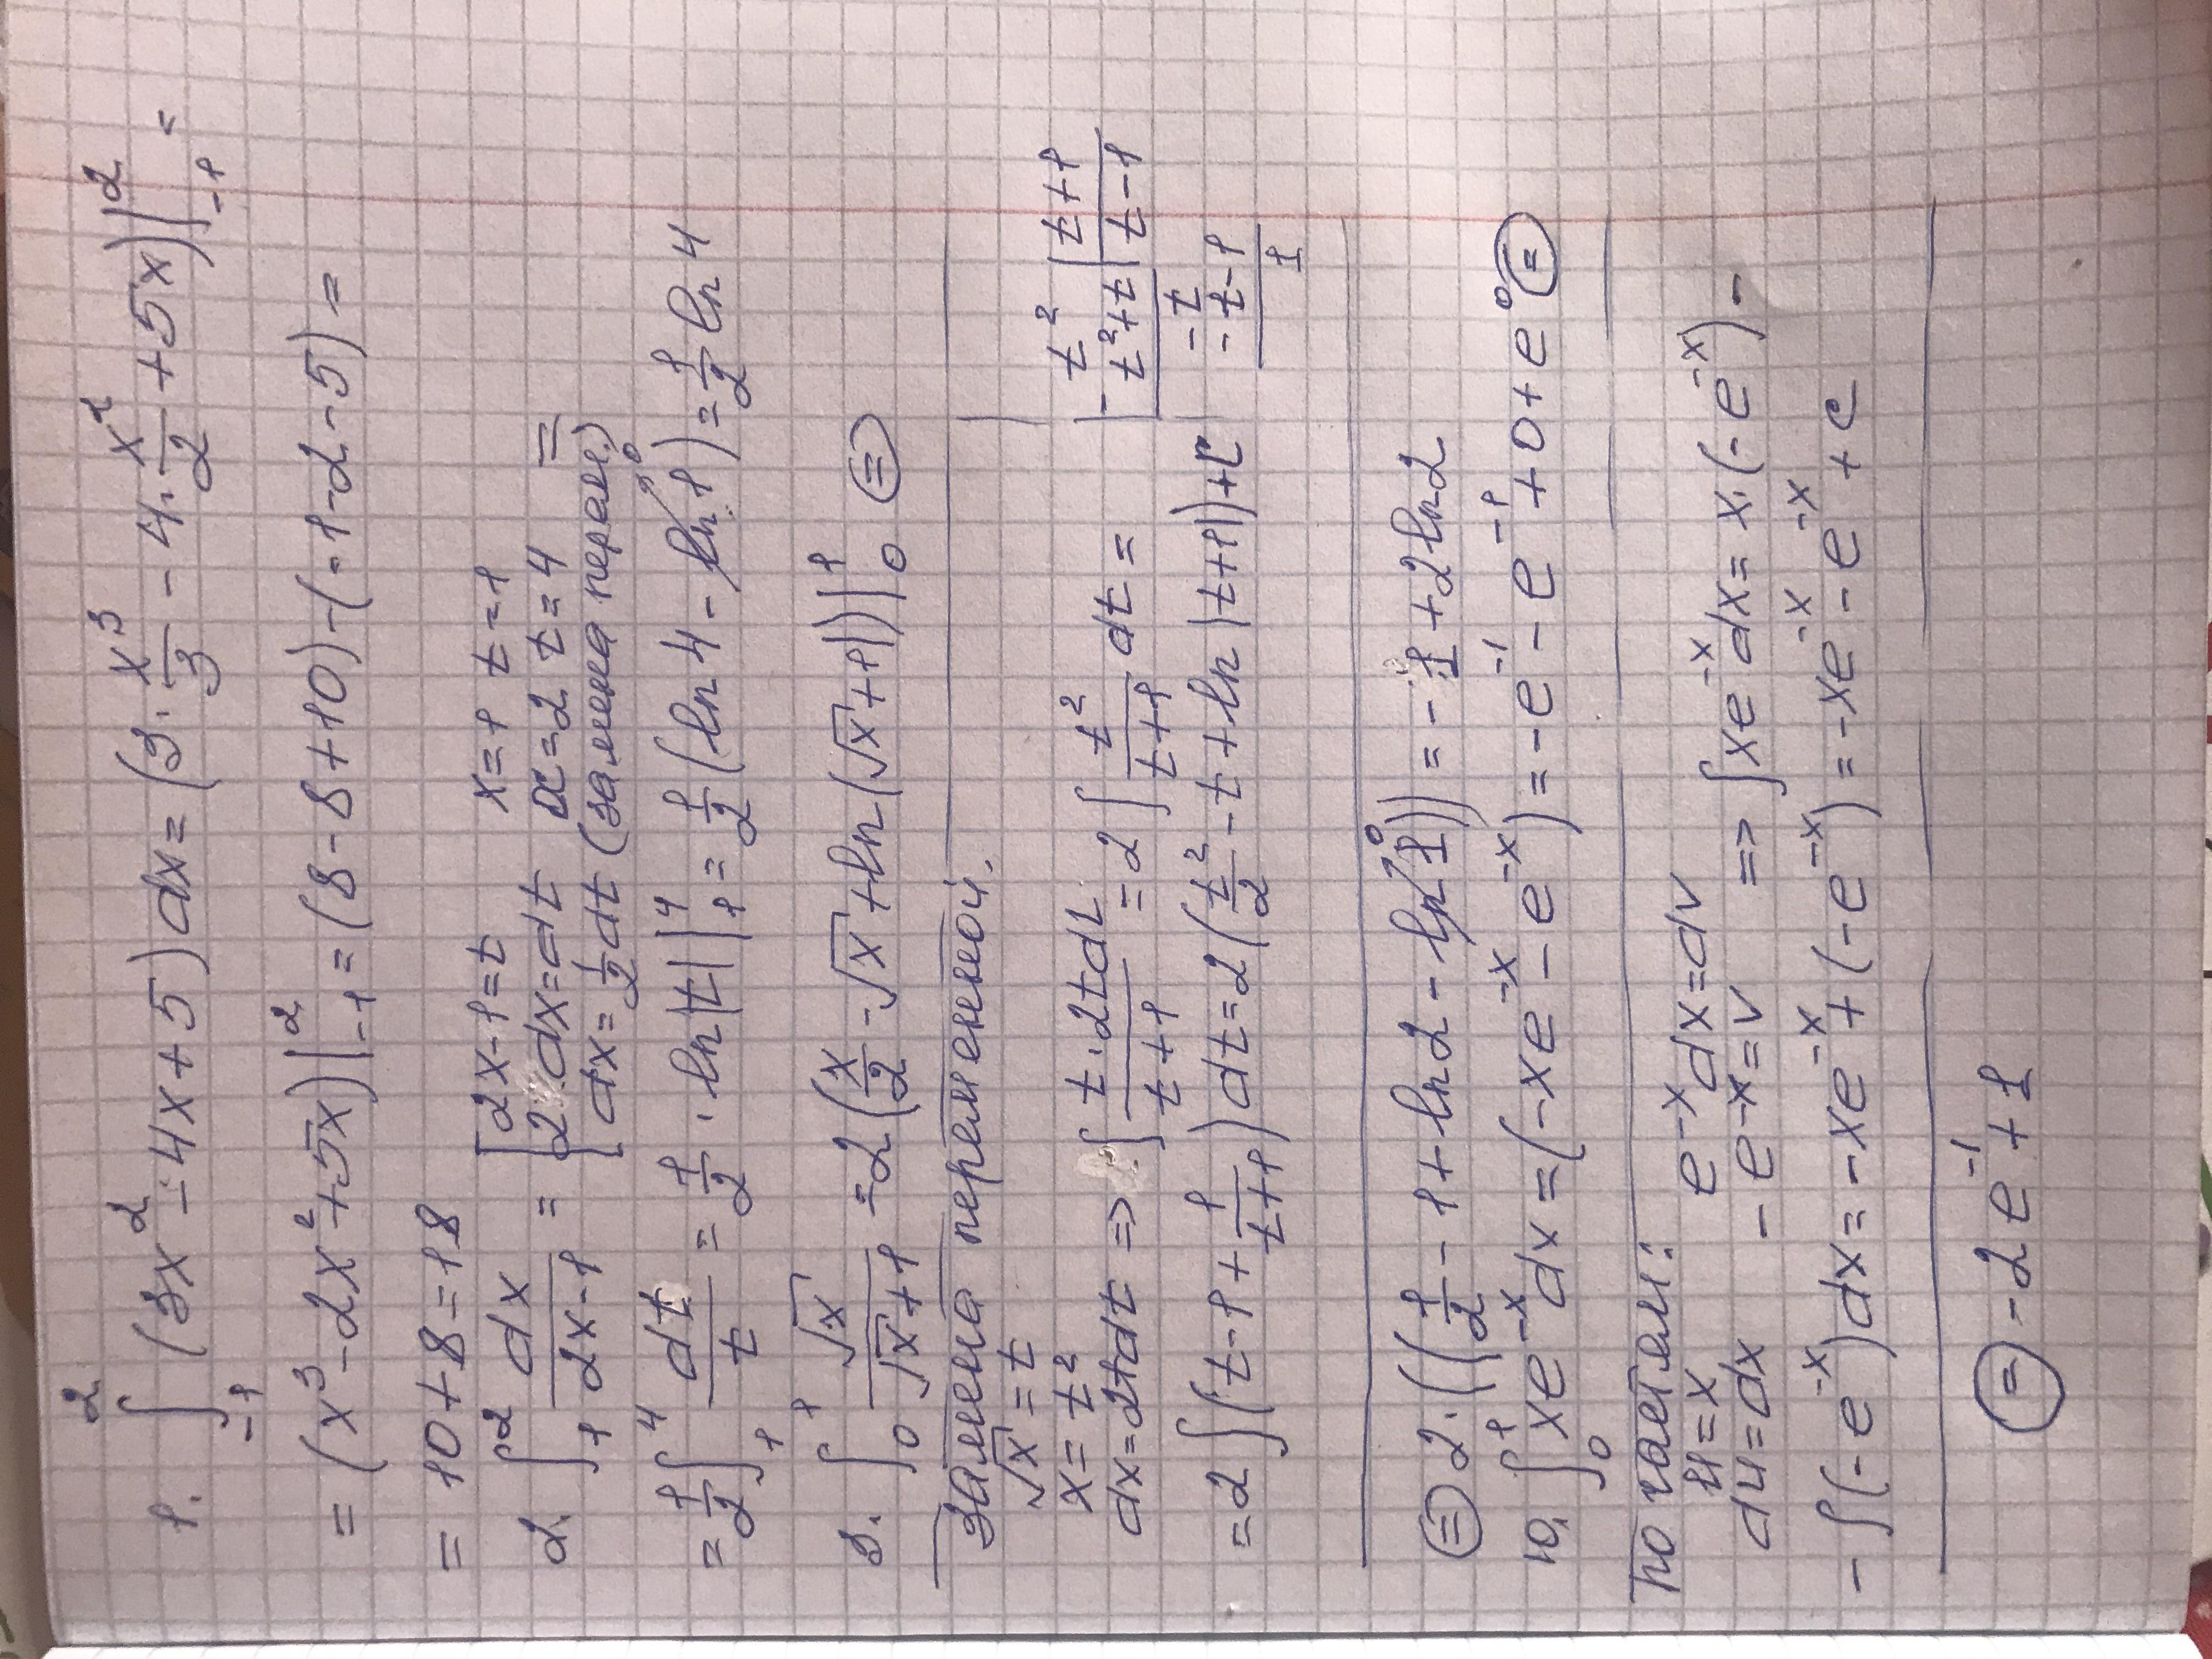 1. ∫₋₁² (3x² - 4x + 5)dx = (3·x³/3 - 4·x²/2 + 5x)|₋₁² =
= (x³ - 2x² + 5x)|₋₁² = (8 - 8 + 10) - (-1 - 2 - 5) =
= 10 + 8 = 18
2. ∫₁² dx/(2x-1) = [2x-1=t x=1 t=1
2·dx=dt x=2 t=4 =
dx=1/2 dt (замена перем.)
= 1/2 ∫₁⁴ dt/t = 1/2 · ln|t| |₁⁴ = 1/2 (ln4 - ln1→0) = 1/2 ln4
3. ∫₀¹ √x/(√x+1) = 2(x/2 - √x + ln(√x+1|)|₀¹ ⊜
Замена переменной.
√x = t
x = t²
dx = 2tdt => ∫ t·2tdt/(t+1) = 2∫ t²/(t+1) dt =
= 2∫(t-1+1/(t+1))dt = 2(t²/2 - t + ln|t+1|)+C
t² | t+1
- t²+t | t-1
-t
- -t-1
1
⊜ 2·((1/2 - 1 + ln2 - ln1→0)) = -1 + 2ln2
10. ∫₀¹ xe⁻ˣdx = (-xe⁻ˣ - e⁻ˣ) = -e⁻¹ - e⁻¹ + 0 + e⁰ ⊜
По частям:
u = x e⁻ˣdx = dv
du = dx -e⁻ˣ = v => ∫xe⁻ˣdx = x·(-e⁻ˣ) -
- ∫(-e⁻ˣ)dx = -xe⁻ˣ + (-e⁻ˣ) = -xe⁻ˣ - e⁻ˣ + c
⊜ -2e⁻¹ + 1